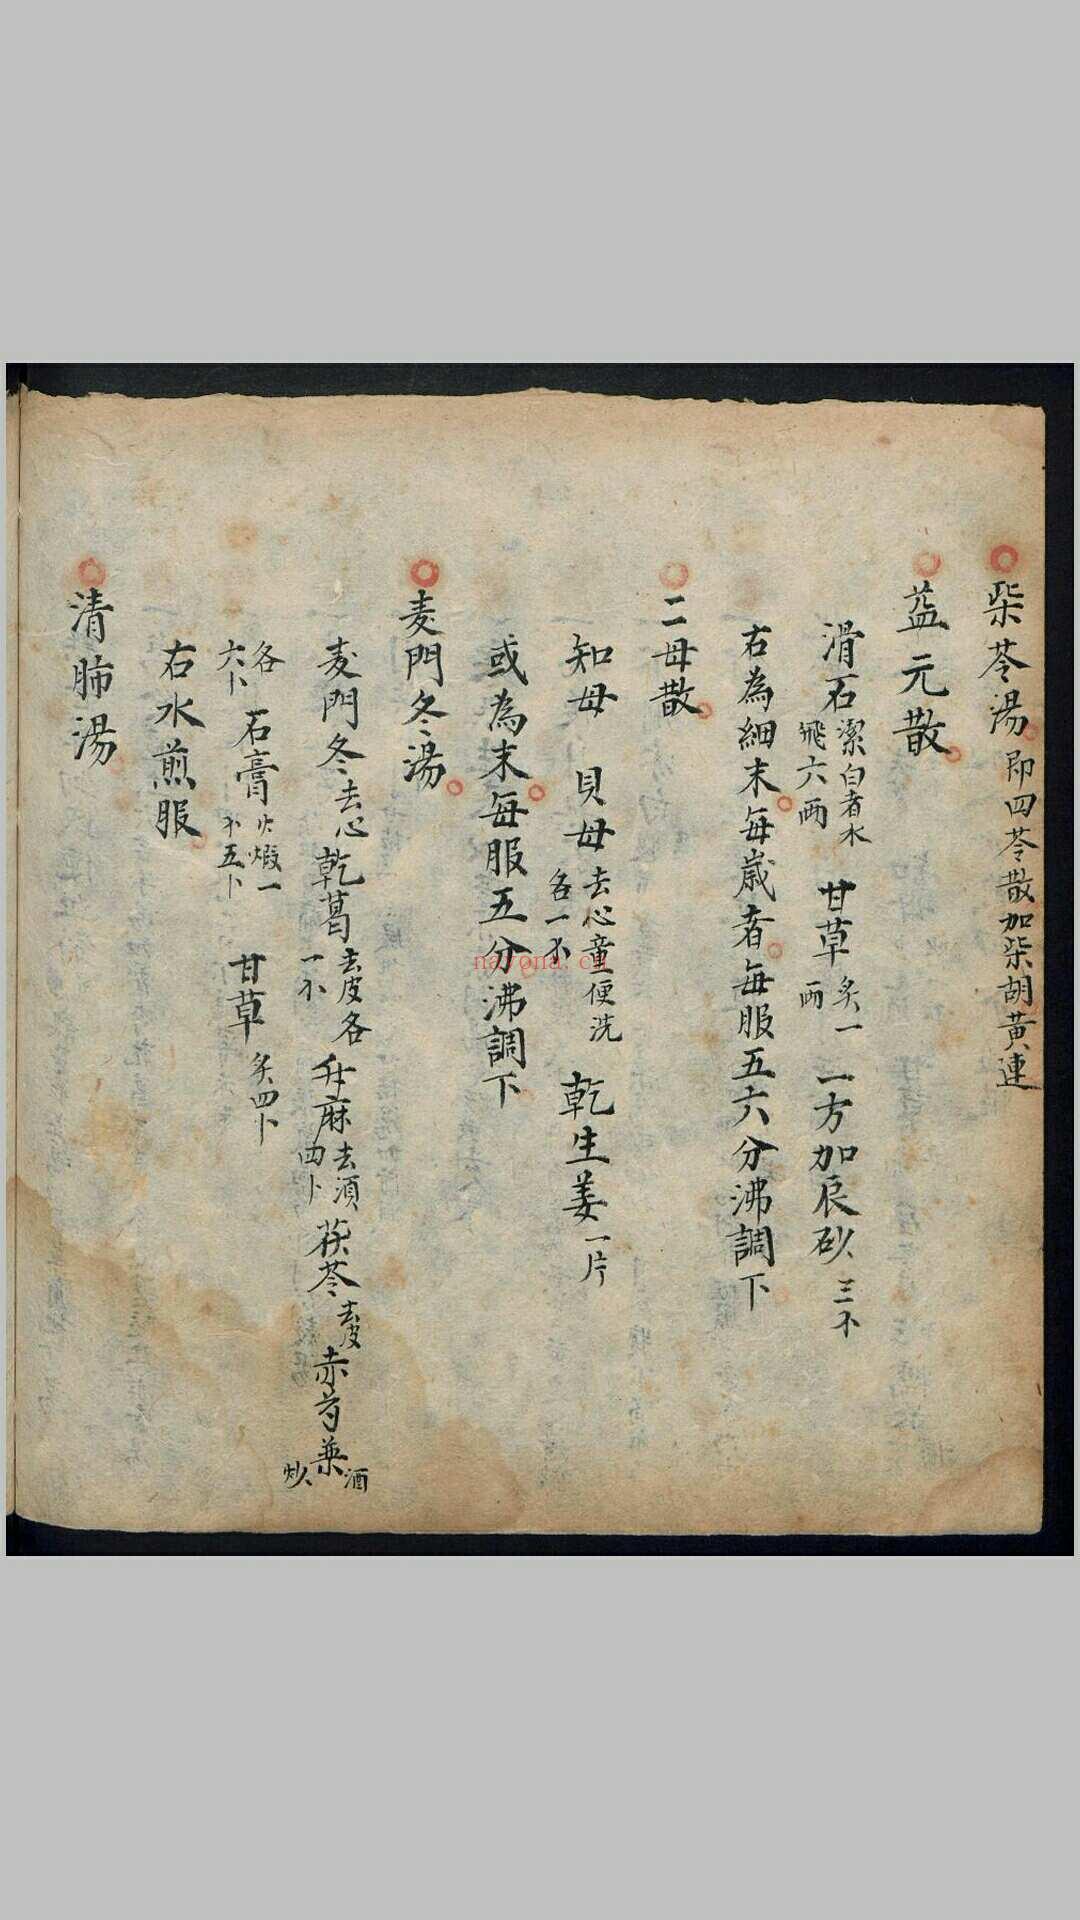 柴苓湯 即四苓散加柴胡黃連
益元散
滑石 潔白者水飛六両 甘草 炙一両 一方加辰砂 三不
右為細末每歲者每服五六分沸調下
二母散
知母 貝母 去心童便洗各一不 乾生姜 一片
或為末每服五分沸調下
麦門冬湯
麦門冬 去心 乾葛 去皮各一不 升麻 去須四卜 茯苓 去皮 赤芍藥 酒炒
各六卜 石膏 火煅一不五卜 甘草 炙四卜
右水煎服
清肺湯
nayona.cn